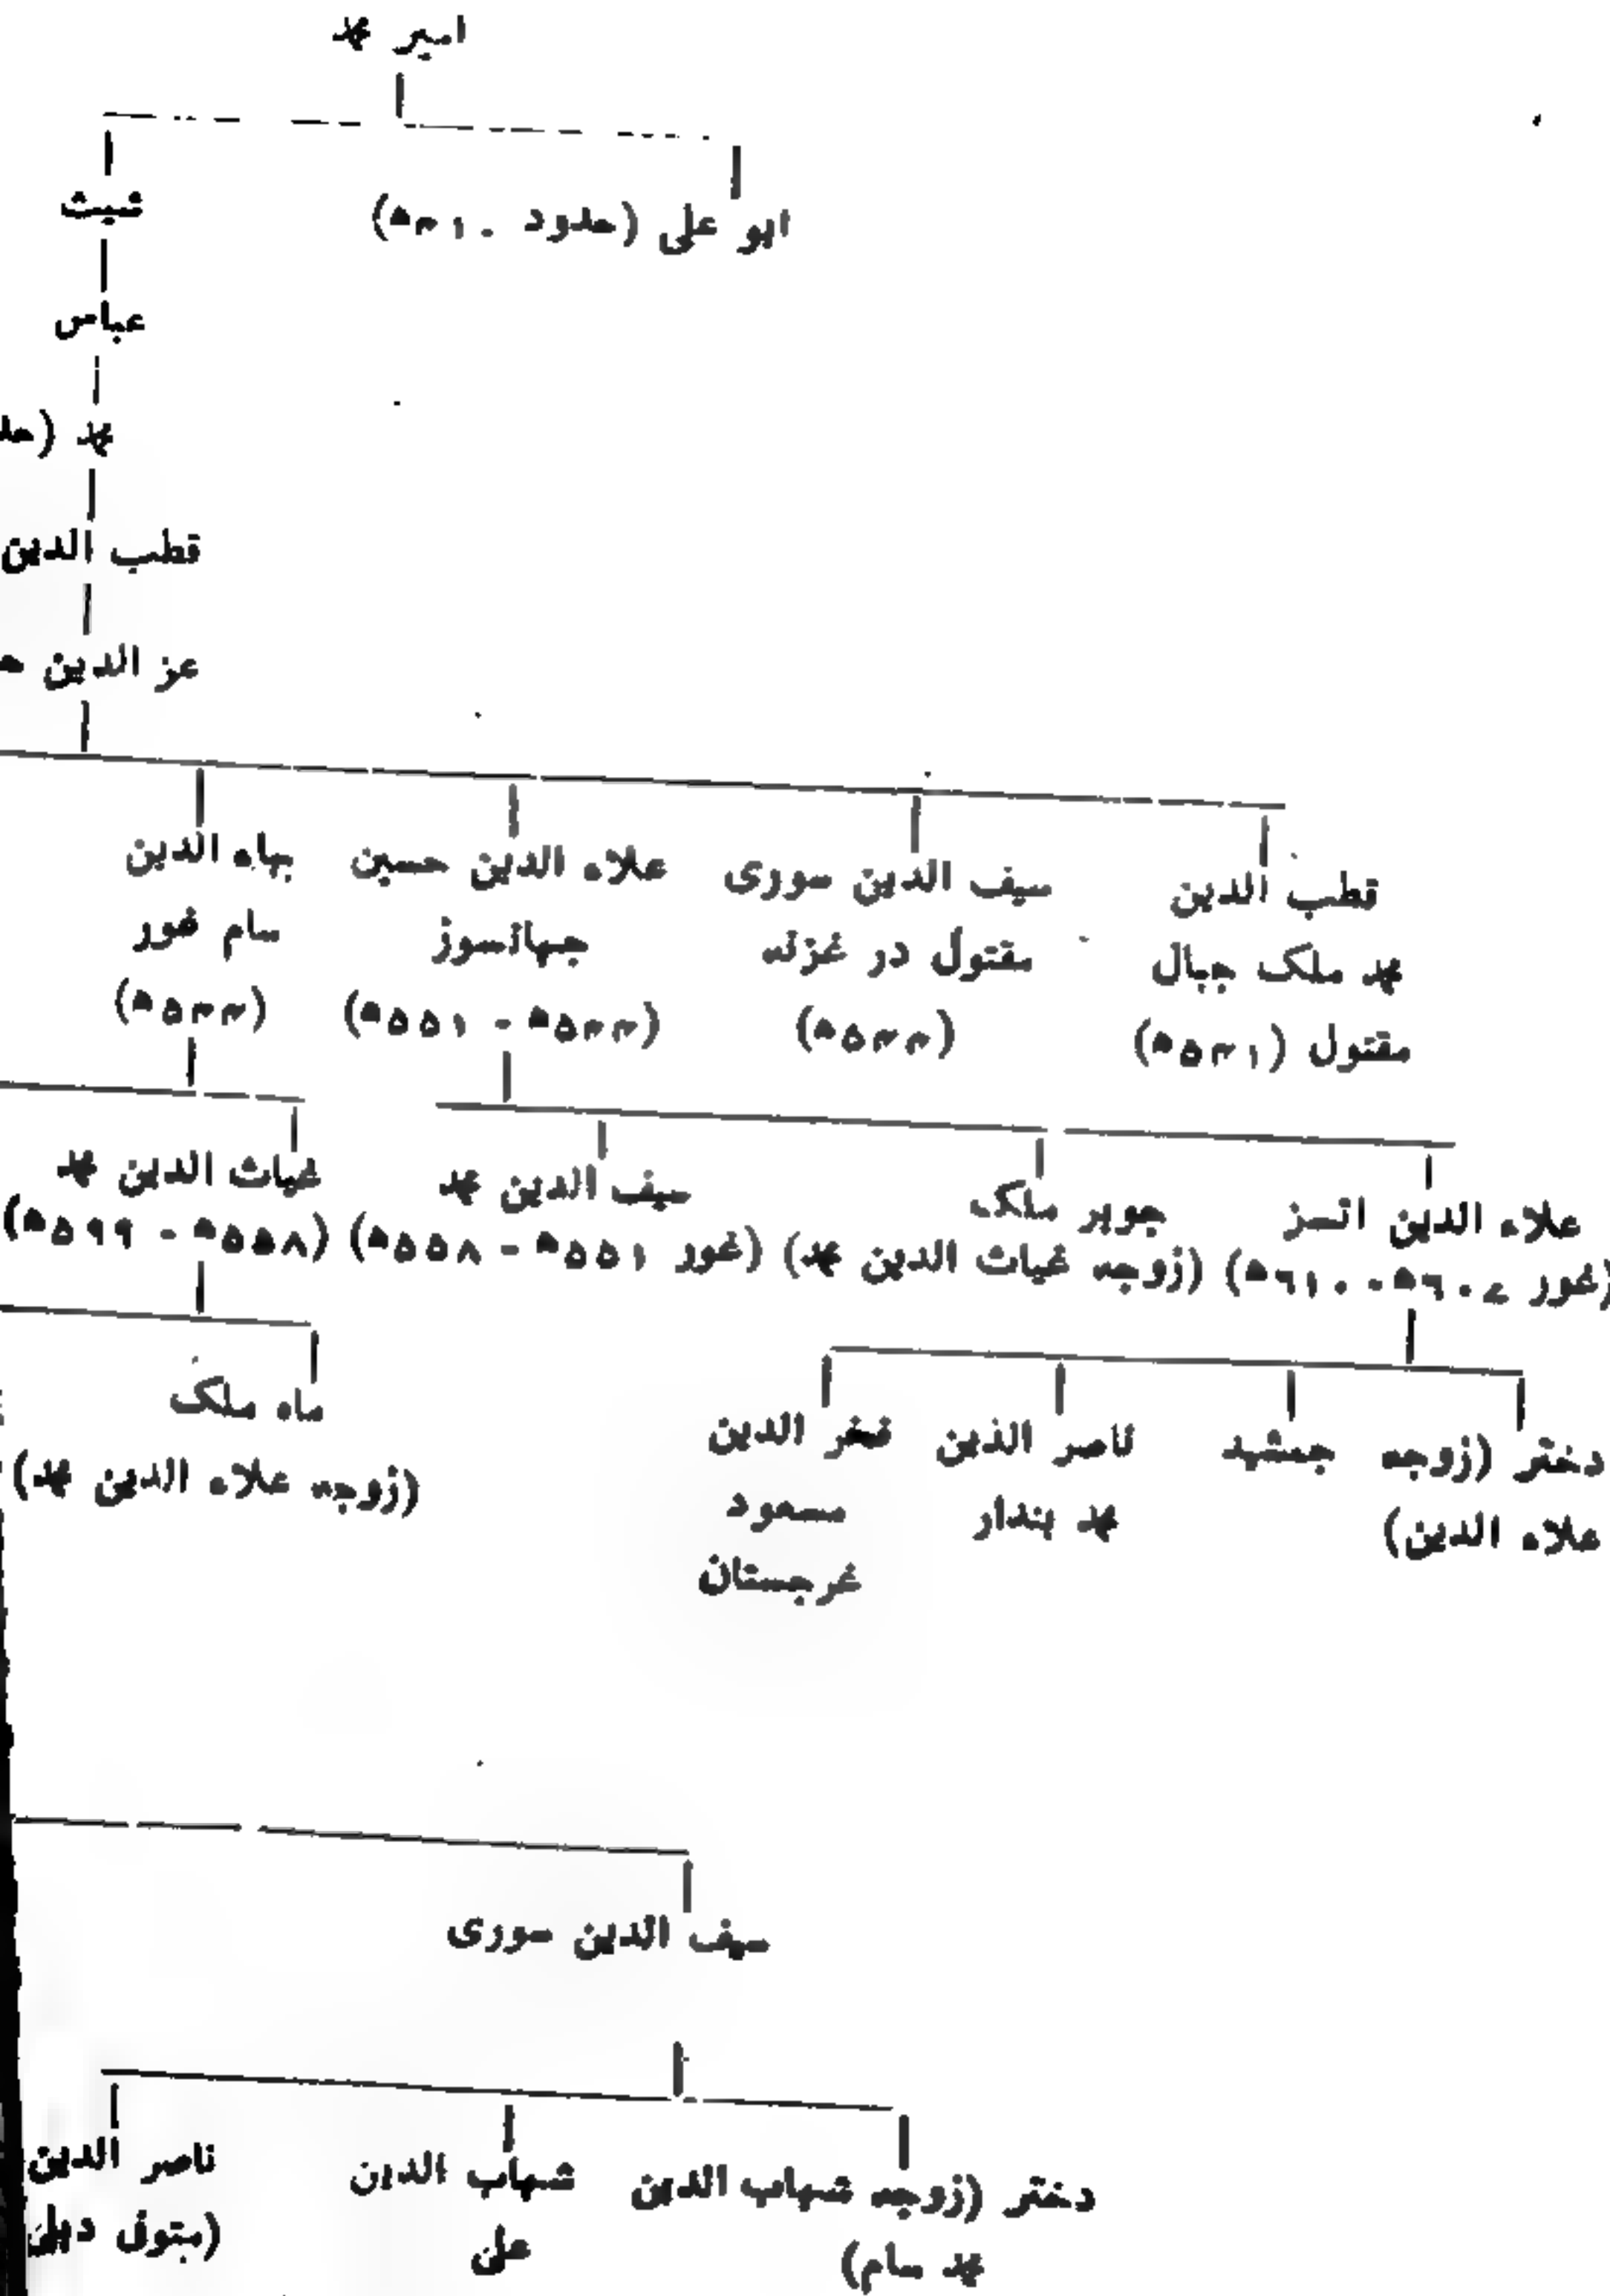 امیر محمد
ابو علی (حدود ۴۱۰ھ)
شیث
عباس
محمد
قطب الدین
عز الدین
قطب الدین
محمد ملک جبال
مقتول (۵۴۱ھ)
سیف الدین سوری
مقتول در غزنہ
(۵۴۴ھ)
علاء الدین حسین
جہانسوز
(۵۴۴ھ - ۵۵۱ھ)
بہاء الدین
سام غور
(۵۴۴ھ)
علاء الدین اتسز
(غور ۶۰۷ھ - ۶۱۰ھ)
جوہر ملک
(زوجہ غیاث الدین محمد)
سیف الدین محمد
(غور ۵۵۱ھ - ۵۵۸ھ)
غیاث الدین محمد
(۵۵۸ھ - ۵۹۹ھ)
دختر (زوجہ
علاء الدین)
جمشید
ناصر الدین
محمد بندار
فخر الدین
مسعود
غرجستان
ماہ ملک
(زوجہ علاء الدین محمد)
سیف الدین سوری
دختر (زوجہ شہاب الدین
محمد سام)
شہاب الدین
علی
ناصر الدین